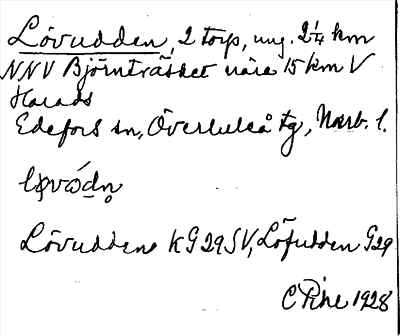 Lövudden, 2 torp, ung. 2 1/4 km
NNV Björnträsket nära 15 km V
Harads
Edefors sn, Överluleå tg, Norrb. l.
Lövuddens KG 29 SV, Löfudden G29
1928